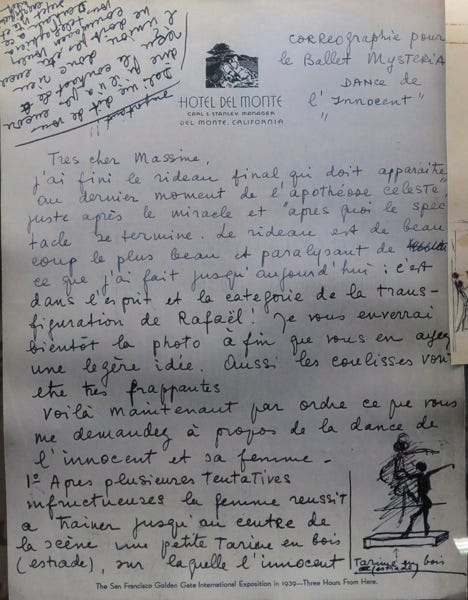 correographie pour
le Ballet MYSTERIA
DANCE de
l'Innocent"
"
HOTEL DEL MONTE
CARL S. STANLEY, MANAGER
DEL MONTE, CALIFORNIA
Tres cher Massine,
j'ai fini le rideau final qui doit apparaitre
au dernier moment de l'apothéose celeste,
juste après le miracle et "apres quoi le spec
tacle se termine. Le rideau est de beau
coup le plus beau et paralysant de
ce que j'ai fait jusqu'aujourd'hui: c'est
dans l'esprit et la categorie de la trans-
figuration de Rafaël! Je vous enverrai
bientôt la photo à fin que vous en ayez
une legère idée. Aussi les coulisses von
etre tres frappantes
Voilà maintenant par ordre ce que vous
me demandez à propos de la dance de
l'innocent et sa femme -
1º Apres plusieures tentatives
infructueuses la femme reussit
a trainer jusqu'au centre de
la scène une petite Tarime en bois
(estrade), sur laquelle l'innocent
Tarime
(estrade) bois
The San Francisco Golden Gate International Exposition in 1939—Three Hours From Here.